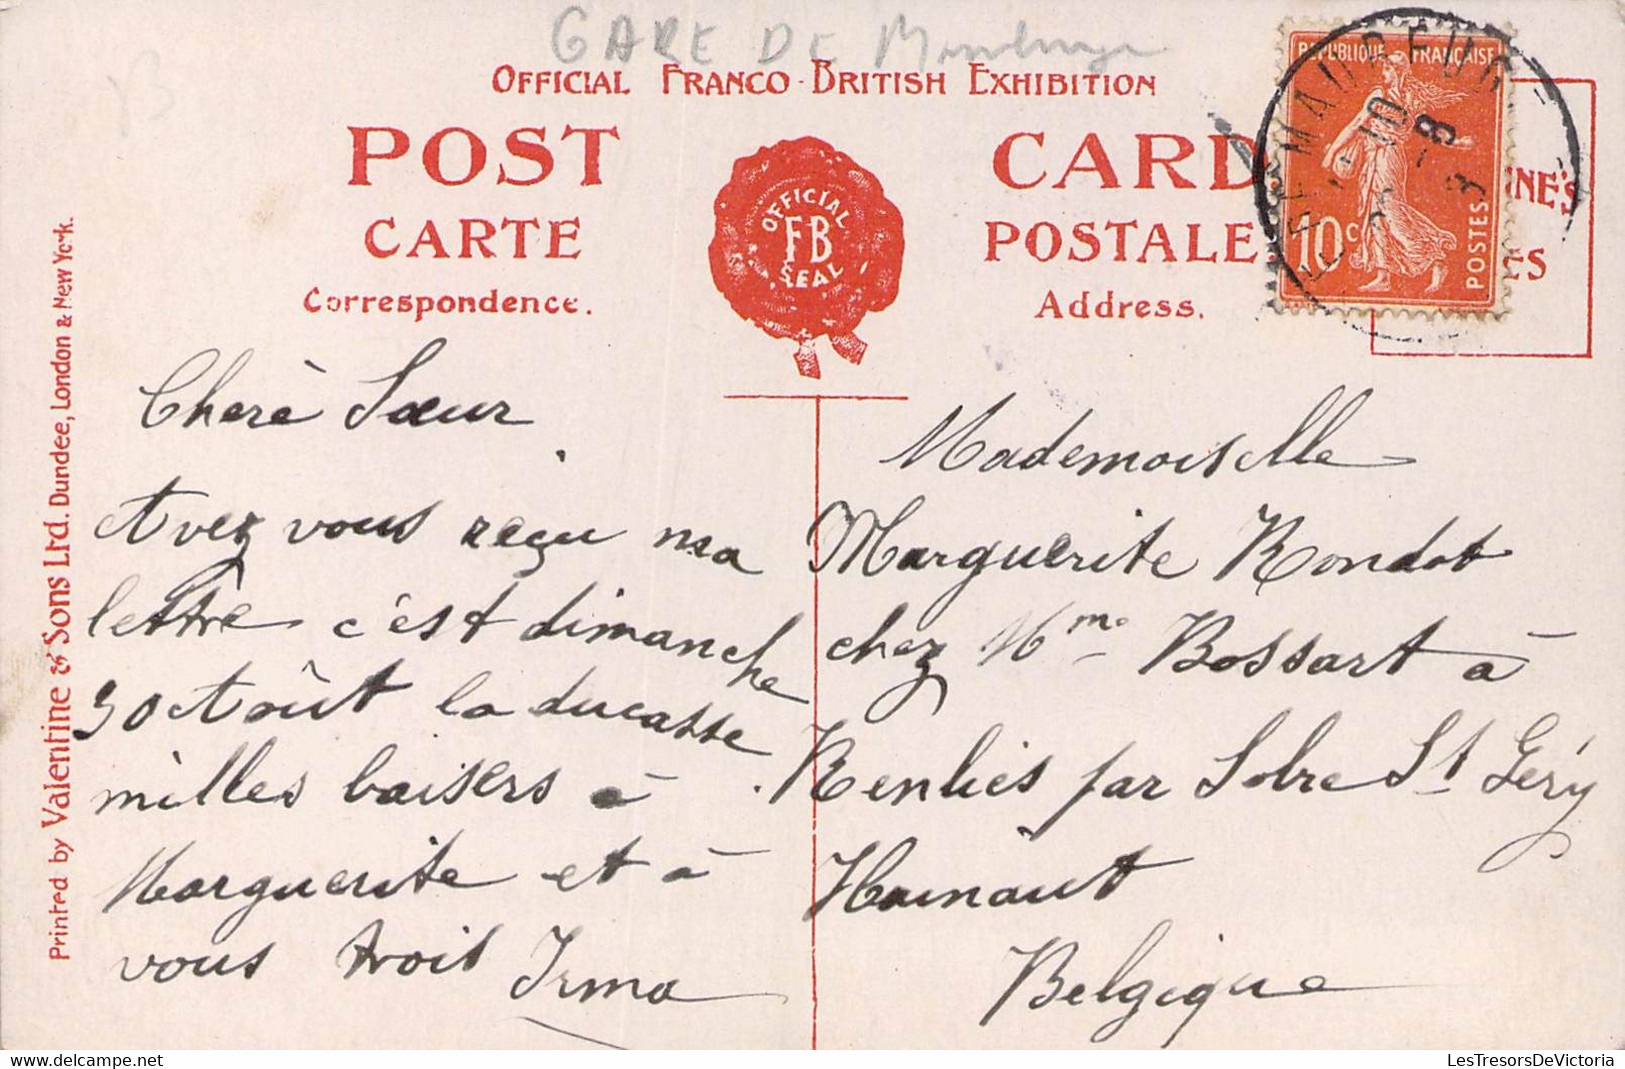 GARE DE
OFFICIAL FRANCO-BRITISH EXHIBITION
POST CARD
CARTE POSTALE
Correspondence. Address.
OFFICIAL
FB
SEAL
REPUBLIQUE FRANÇAISE
10c
POSTES
MAUBEUGE
INE'S
ES
Printed by Valentine & Sons Ltd. Dundee, London & New York.
Cherè Sœur
Avez vous reçu ma
lettre c'est dimanche
30 Aôut la ducasse
milles baisers à
Marguerite et à
vous trois Irma
Mademoiselle
Marguerite Rondot
chez Mme Bossart à
Renlies par Solre St Géry
Hainaut
Belgique
LesTresorsDeVictoria